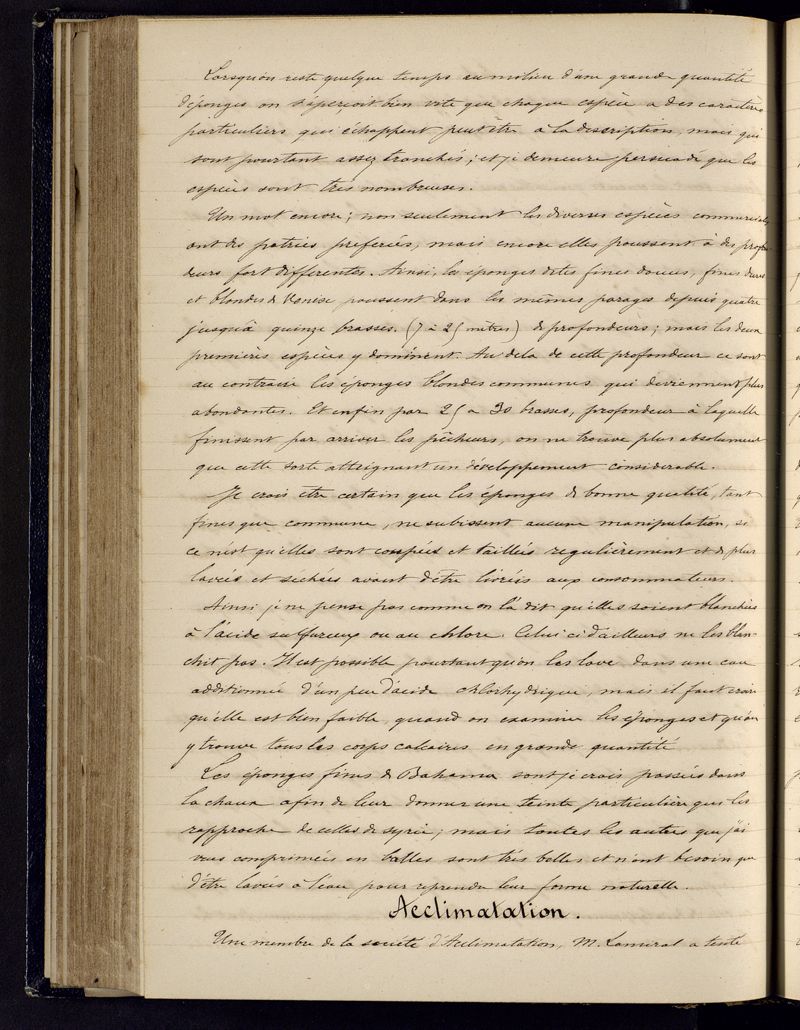 Lorsqu'on reste quelque temps au milieu d'une grande quantité
d'éponges on s'aperçoit bien vite que chaque espèce a des caractères
particuliers qui échappent peut être à la description, mais qui
sont pourtant assez tranchés; et je demeure persuadé que les
espèces sont très nombreuses.
Un mot encore; non seulement les diverses espèces commerciales
ont des patries préférées, mais encore elles poussent à des profon
deurs fort différentes. Ainsi, les éponges dites fines douces, fines dures
et blondes de Venise, poussent dans les mêmes parages depuis quatre
jusqu'à quinze brasses. (7 à 25 mètres) de profondeurs; mais les deux
premières espèces y dominent. Au delà de cette profondeur ce sont
au contraire les éponges blondes communes qui deviennent plus
abondantes. Et enfin par 25 à 30 brasses, profondeur à laquelle
finissent par arriver les pêcheurs, on ne trouve plus absolument
que cette sorte atteignant un développement considérable.
Je crois être certain que les éponges de bonne qualité, tant
fines que commune, ne subissent aucune manipulation, si
ce n'est qu'elles sont coupées et taillées regulièrement et de plus
lavées et séchées avant d'être livrées aux consommateurs.
Ainsi je ne pense pas comme on l'a dit qu'elles soient blanchies
à l'acide sulfureux ou au chlore. Celui ci d'ailleurs ne les blan-
chit pas. Il est possible pourtant qu'on les lave dans une eau
additionnée d'un peu d'acide chlorhydrique, mais il faut croire
qu'elle est bien faible, quand on examine les éponges et qu'on
y trouve tous les corps calcaires en grande quantité
Les éponges fines de Bahama sont je crois passées dans
la chaux afin de leur donner une teinte particulière qui les
rapproche de celles de syrie; mais toutes les autres que j'ai
vues comprimées en balles sont très belles et n'ont besoin que
d'être lavées à l'eau pour reprendre leur forme naturelle.
Acclimatation.
Une membre de la société d'Acclimatation, M. Lamiral a tenté